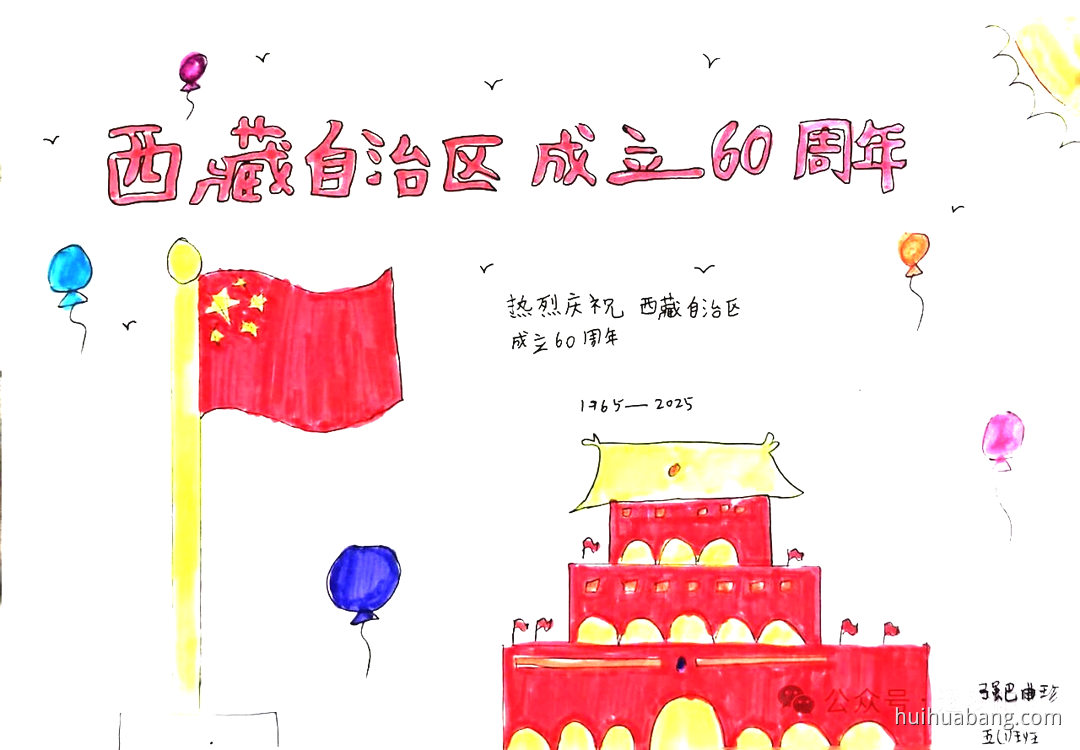 西藏自治区成立60周年
热烈庆祝 西藏自治区
成立60周年
1965—2025
强巴曲珍
公众号
huihuabang.com
五(1)班